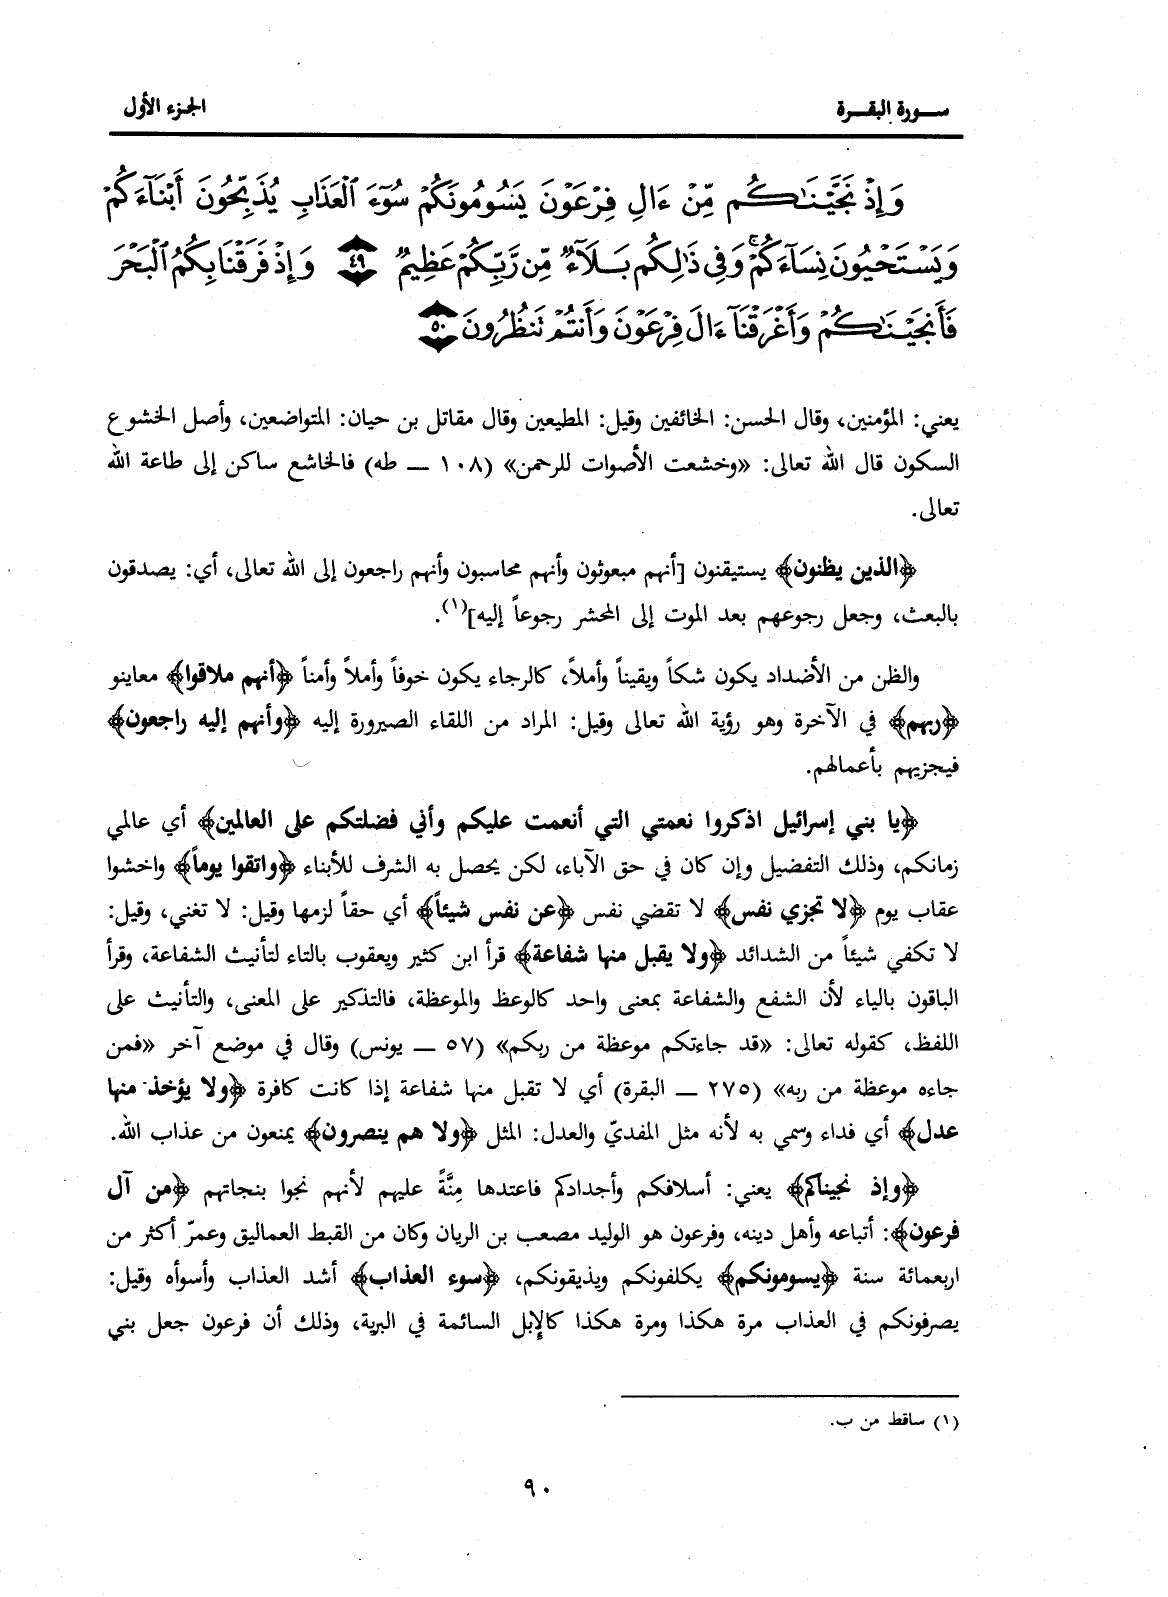 سورة البقرة
الجزء الأول
وَإِذْ نَجَّيْنَٰكُم مِّنْ ءَالِ فِرْعَوْنَ يَسُومُونَكُمْ سُوٓءَ ٱلْعَذَابِ يُذَبِّحُونَ أَبْنَآءَكُمْ
وَيَسْتَحْيُونَ نِسَآءَكُمْ ۚ وَفِى ذَٰلِكُم بَلَآءٌ مِّن رَّبِّكُمْ عَظِيمٌ ٤٩ وَإِذْ فَرَقْنَا بِكُمُ ٱلْبَحْرَ
فَأَنجَيْنَٰكُمْ وَأَغْرَقْنَآ ءَالَ فِرْعَوْنَ وَأَنتُمْ تَنظُرُونَ ٥٠
يعني: المؤمنين، وقال الحسن: الخائفين وقيل: المطيعين وقال مقاتل بن حيان: المتواضعين، وأصل الخشوع
السكون قال الله تعالى: «وخشعت الأصوات للرحمن» (١٠٨ ــ طه) فالخاشع ساكن إلى طاعة الله
تعالى.
﴿الذين يظنون﴾ يستيقنون [أنهم مبعوثون وأنهم محاسبون وأنهم راجعون إلى الله تعالى، أي: يصدقون
بالبعث، وجعل رجوعهم بعد الموت إلى المحشر رجوعاً إليه](١).
والظن من الأضداد يكون شكاً ويقيناً وأملاً، كالرجاء يكون خوفاً وأملاً وأمناً ﴿أنهم ملاقوا﴾ معاينو
﴿ربهم﴾ في الآخرة وهو رؤية الله تعالى وقيل: المراد من اللقاء الصيرورة إليه ﴿وأنهم إليه راجعون﴾
فيجزيهم بأعمالهم.
﴿يا بني إسرائيل اذكروا نعمتي التي أنعمت عليكم وأني فضلتكم على العالمين﴾ أي عالمي
زمانكم، وذلك التفضيل وإن كان في حق الآباء، لكن يحصل به الشرف للأبناء ﴿واتقوا يوماً﴾ واخشوا
عقاب يوم ﴿لا تجزي نفس﴾ لا تقضي نفس ﴿عن نفس شيئاً﴾ أي حقاً لزمها وقيل: لا تغني، وقيل:
لا تكفي شيئاً من الشدائد ﴿ولا يقبل منها شفاعة﴾ قرأ ابن كثير ويعقوب بالتاء لتأنيث الشفاعة، وقرأ
الباقون بالياء لأن الشفع والشفاعة بمعنى واحد كالوعظ والموعظة، فالتذكير على المعنى، والتأنيث على
اللفظ، كقوله تعالى: «قد جاءتكم موعظة من ربكم» (٥٧ ــ يونس) وقال في موضع آخر «فمن
جاءه موعظة من ربه» (٢٧٥ ــ البقرة) أي لا تقبل منها شفاعة إذا كانت كافرة ﴿ولا يؤخذ منها
عدل﴾ أي فداء وسمي به لأنه مثل المفديّ والعدل: المثل ﴿ولا هم ينصرون﴾ يمنعون من عذاب الله.
﴿وإذ نجيناكم﴾ يعني: أسلافكم وأجدادكم فاعتدها مِنَّةً عليهم لأنهم نجوا بنجاتهم ﴿من آل
فرعون﴾: أتباعه وأهل دينه، وفرعون هو الوليد مصعب بن الريان وكان من القبط العماليق وعمرّ أكثر من
اربعمائة سنة ﴿يسومونكم﴾ يكلفونكم ويذيقونكم، ﴿سوء العذاب﴾ أشد العذاب وأسوأه وقيل:
يصرفونكم في العذاب مرة هكذا ومرة هكذا كالإبل السائمة في البرية، وذلك أن فرعون جعل بني
(١) ساقط من ب.
٩٠